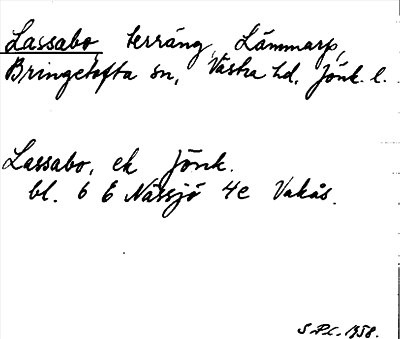 Lassabo, terräng, Lämmarp,
Bringetofta sn, Västra hd, Jönk. l.
Lassabo, ek Jönk.
bl. 6 E Nässjö 4e Vakås.
1958.